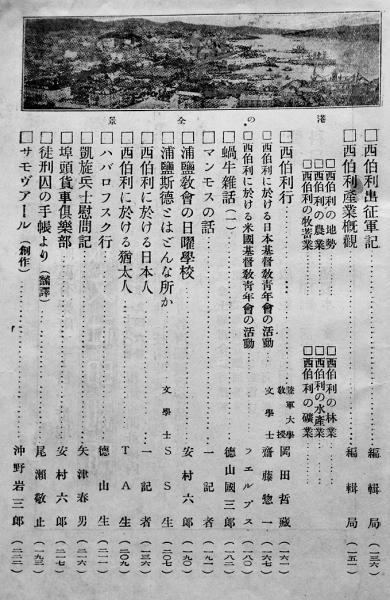 港の全景
□西伯利出征軍記……編輯局(一三六)
□西伯利産業概觀……編輯局(一五一)
□西伯利の地勢
□西伯利の農業
□西伯利の牧畜業
□西伯利の林業
□西伯利の水產業
□西伯利の礦業
□西伯利行……陸軍大學教授 岡田哲藏(一六一)
□西伯利に於ける日本基督教青年會の活動……文學士 齋藤惣一(一六七)
□西伯利に於ける米國基督教青年會の活動……フエルプス(一八〇)
□蝸牛雜話(一)……德山國三郎(一八二)
□マンモスの話……一記者(一九一)
□浦鹽教會の日曜學校……安村六郎(一九〇)
□浦鹽斯德とはどんな所か……文學士 SS生(二〇七)
□西伯利に於ける日本人……一記者(一三六)
□西伯利に於ける猶太人……TA生(二〇九)
□ハバロフスク行……德山生(二一一)
□凱旋兵士慰問記……矢津春男(二一六)
□埠頭貨車俱樂部……安村六郎(二一七)
□徒刑囚の手帳より(飜譯)……尾瀨敬止(一九三)
□サモヴアール(創作)……沖野岩三郎(二二二)